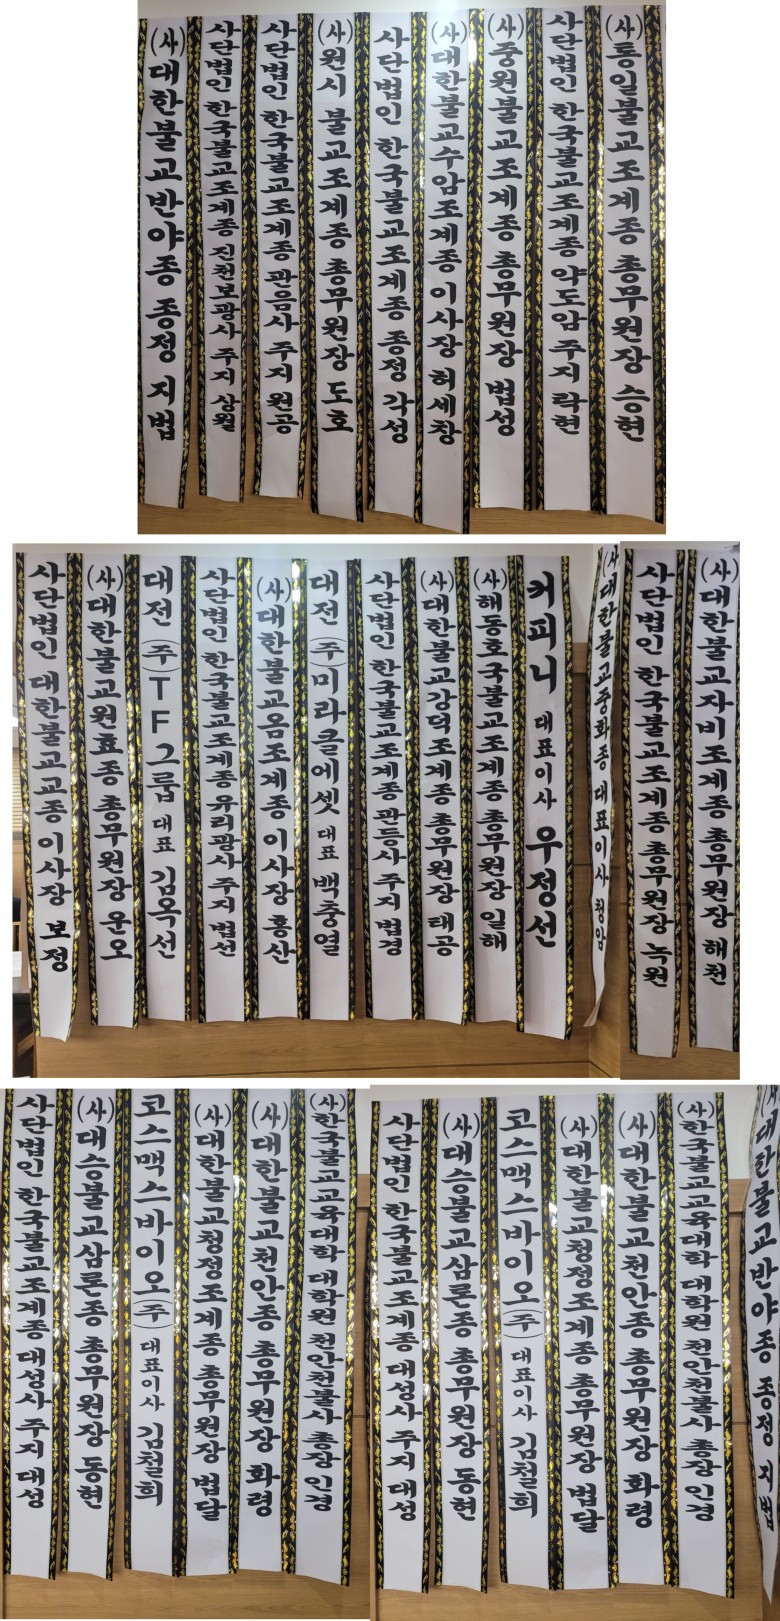 (사)대한불교반야종 종정 지법
사단법인 한국불교조계종 진천보광사 주지 상월
사단법인 한국불교조계종 관음사 주지 원공
(사)원시 불교조계종 총무원장 도호
사단법인 한국불교조계종 종정 각성
(사)대한불교수암조계종 이사장 허세창
(사)중원불교조계종 총무원장 법성
사단법인 한국불교조계종 약도암 주지 락현
(사)통일불교조계종 총무원장 승현
사단법인 대한불교교종 이사장 보정
(사)대한불교원효종 총무원장 운오
대전 (주)TF그룹 대표 김옥선
사단법인 한국불교조계종 유리광사 주지 법선
(사)대한불교옴조계종 이사장 홍산
대전 (주)미라클에셋 대표 백충열
사단법인 한국불교조계종 관등사 주지 법경
(사)대한불교강덕조계종 총무원장 태공
(사)해동호국불교조계종 총무원장 일해
커피니 대표이사 우정선
(사)대한불교중화종 대표이사 청암
사단법인 한국불교조계종 총무원장 녹원
(사)대한불교자비조계종 총무원장 해천
사단법인 한국불교조계종 대성사 주지 대성
(사)대승불교삼론종 총무원장 동현
코스맥스바이오(주) 대표이사 김철희
(사)대한불교청정조계종 총무원장 법달
(사)대한불교천안종 총무원장 화령
(사)한국불교교육대학 대학원 천안천불사 총장 인경
사단법인 한국불교조계종 대성사 주지 대성
(사)대승불교삼론종 총무원장 동현
코스맥스바이오(주) 대표이사 김철희
(사)대한불교청정조계종 총무원장 법달
(사)대한불교천안종 총무원장 화령
(사)한국불교교육대학 대학원 천안천불사 총장 인경
(사)대한불교반야종 종정 지법